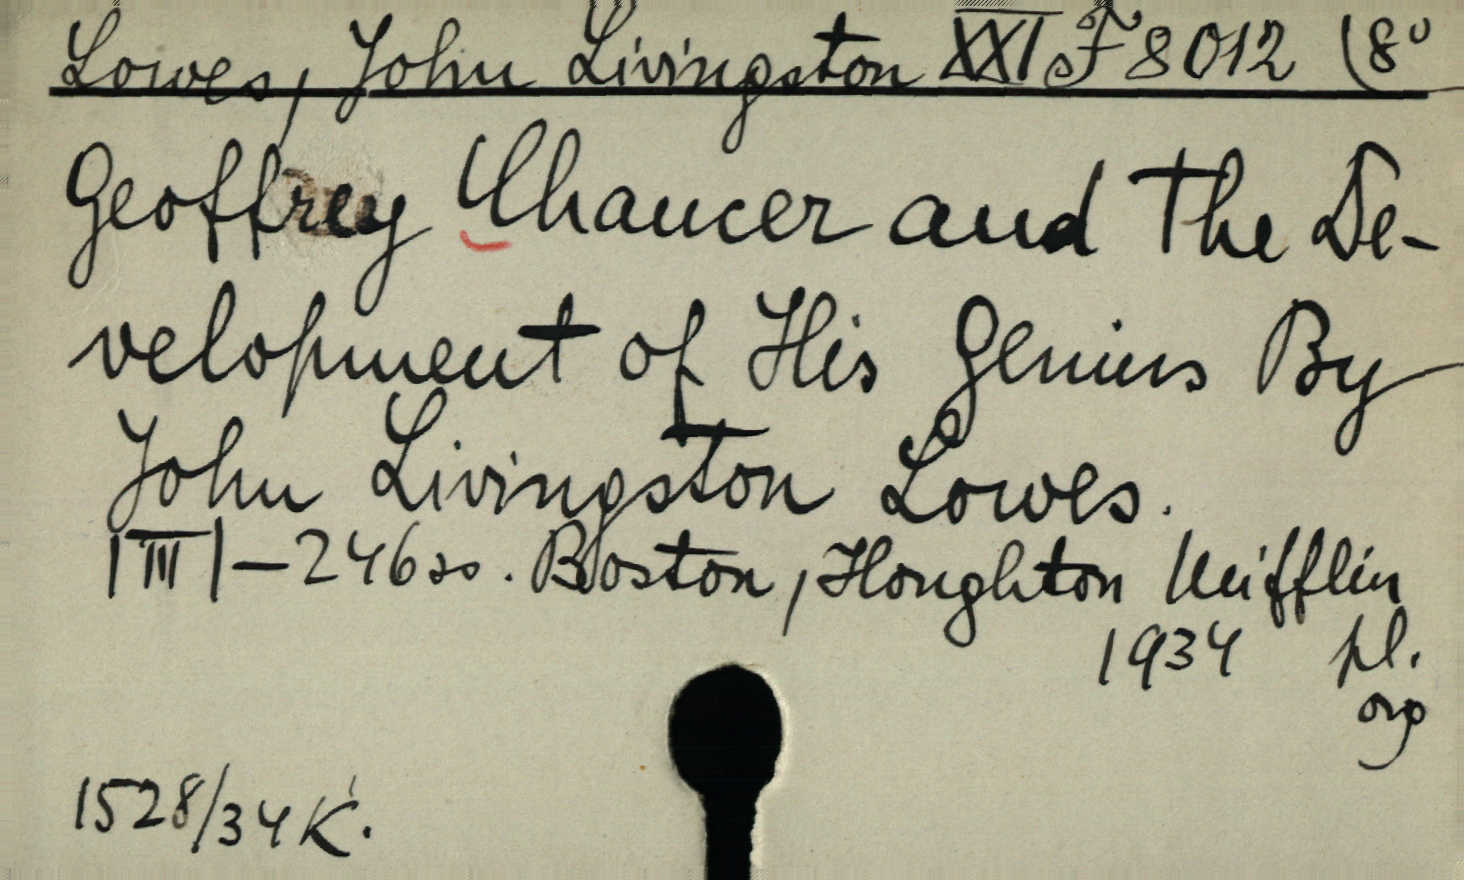 Lowes, John Livingston XXI F 8012 (8°
Geoffrey Chaucer and The De-
velopment of His Genius By
John Livingston Lowes.
|III|-246 ss. Boston, Houghton Mifflin
1934 pl.
1528/34 K.